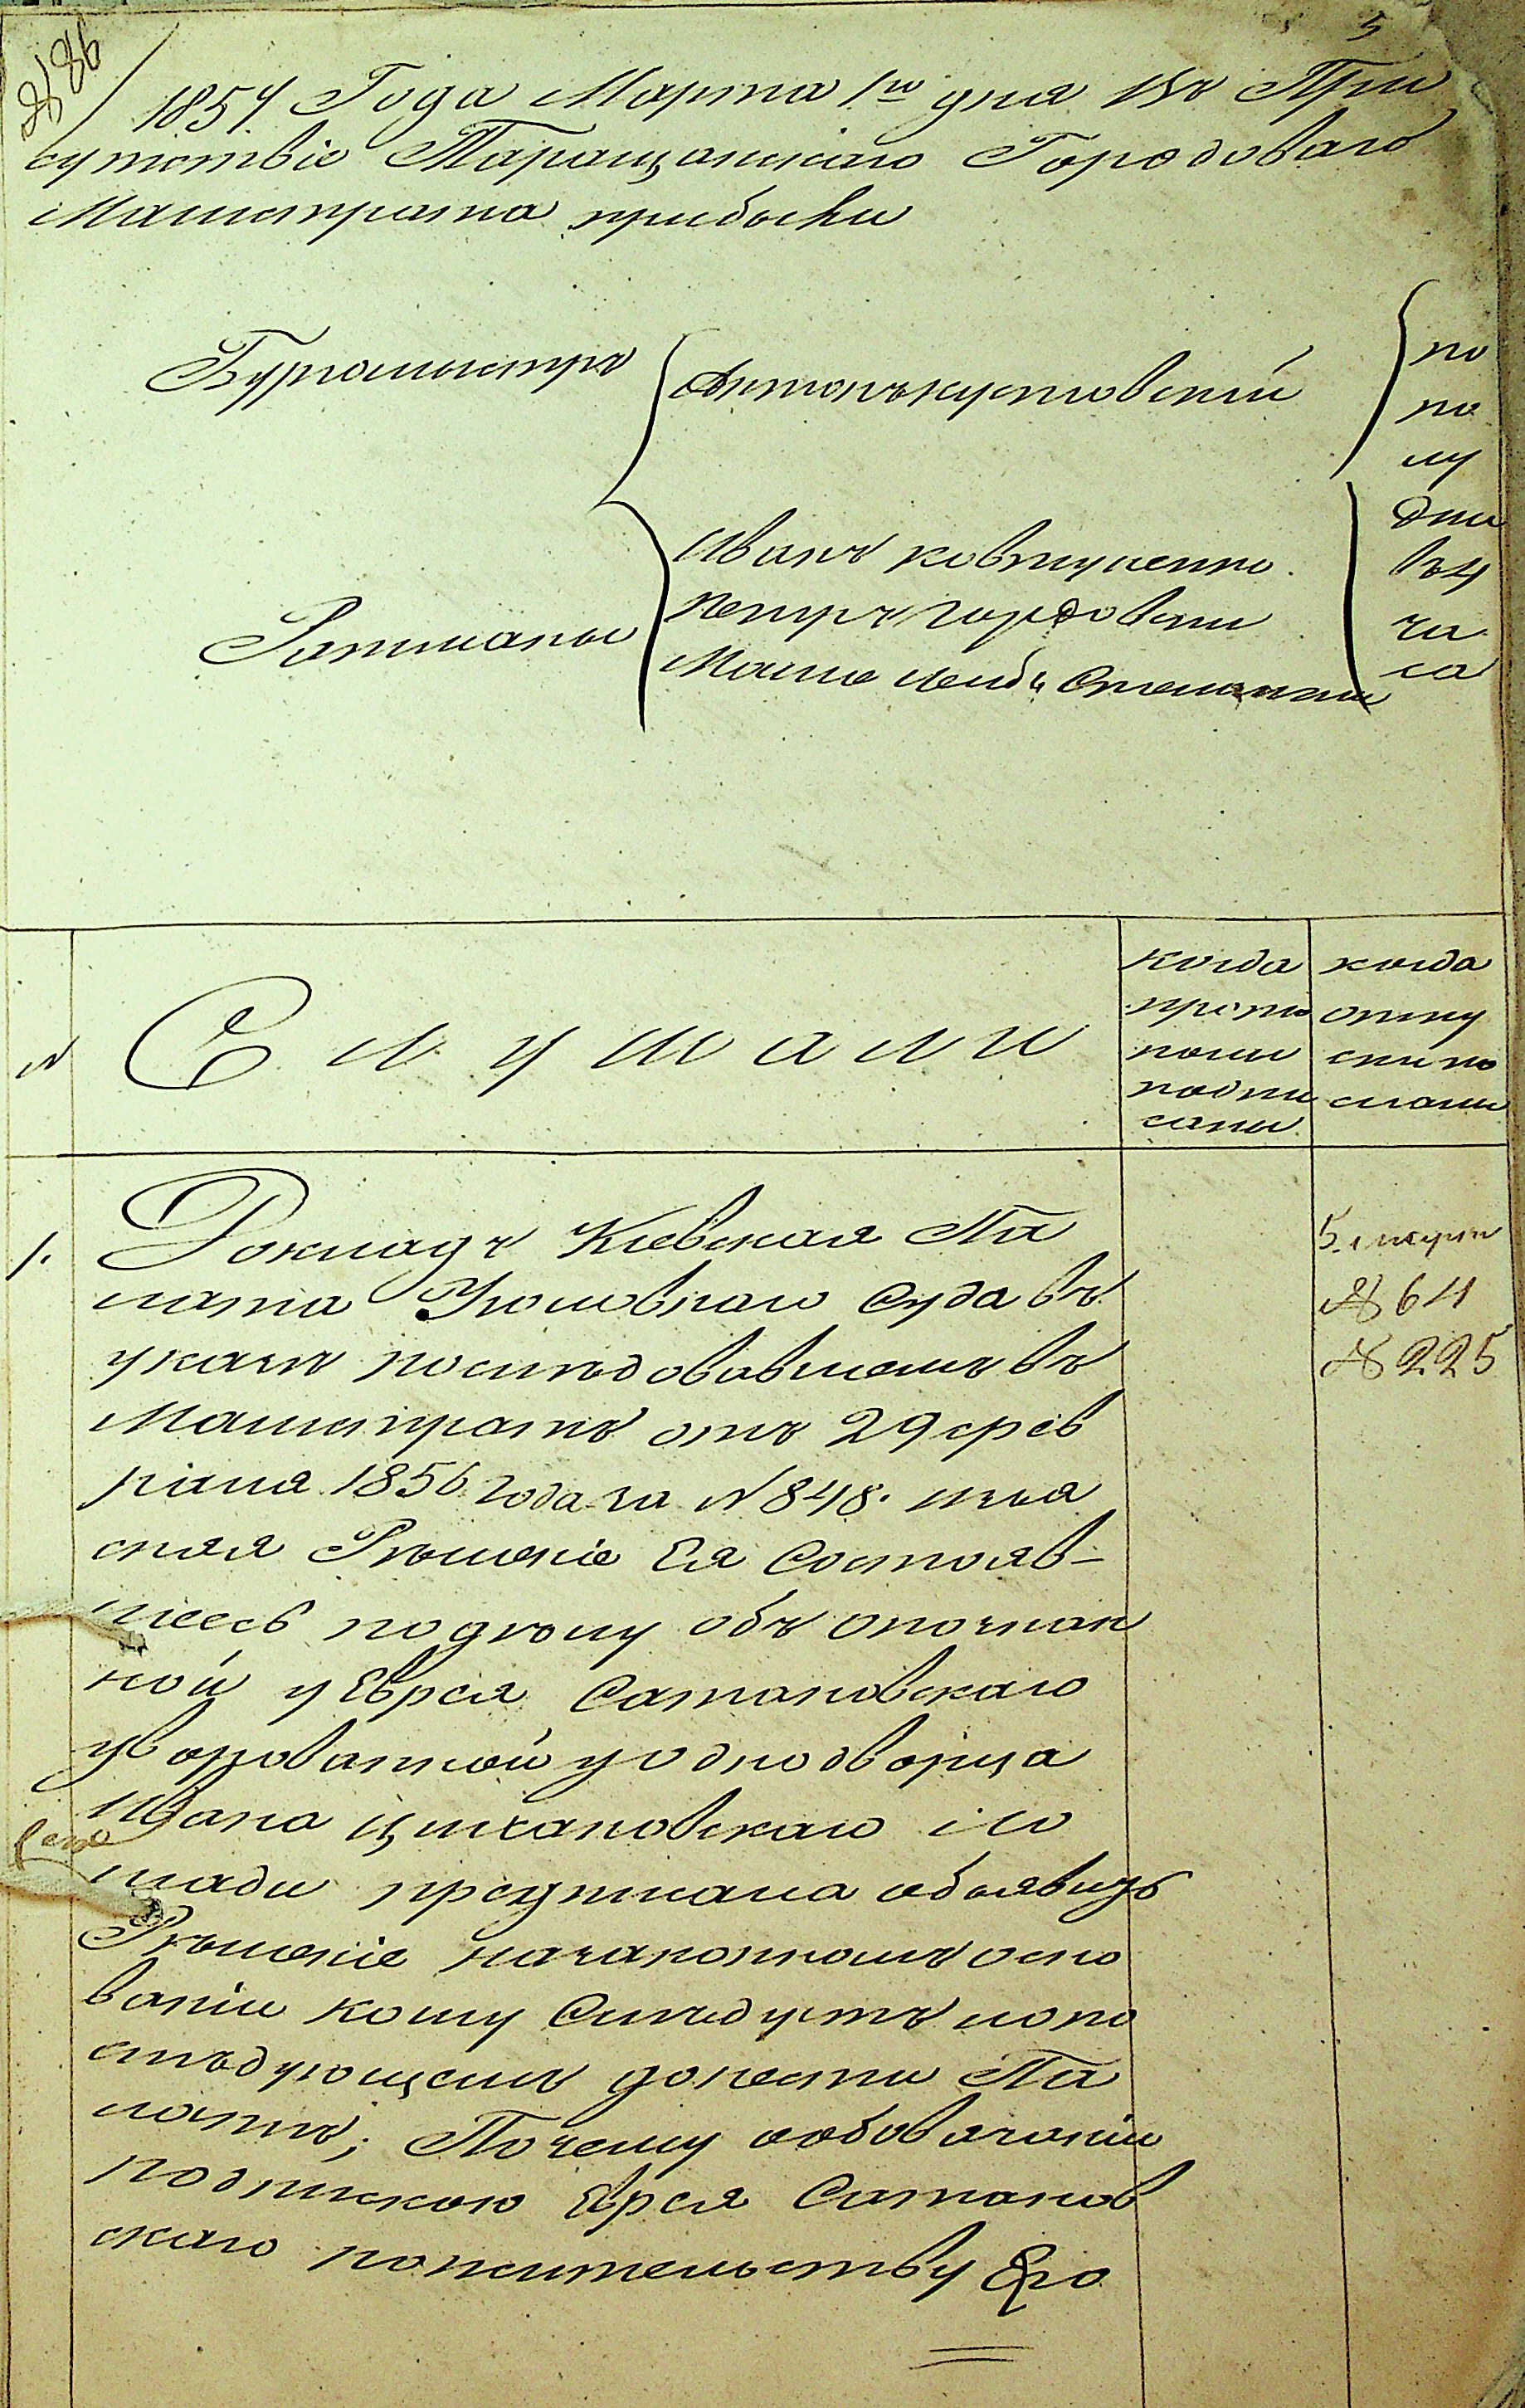 5
№ 86
1857 Года Марта 1го дня Въ При
сутствіе Таращанскаго Городоваго
Магистрата прибыли
Бургомистръ
Антонъ кустовскій
по
по
лу
дни
въ 4
ча
са
Иванъ ковтуненко
петръ гордовени
Ратманы
Мошко лейбъ
N
Слушали
когда прото колы подпи саны
когда отпу
1.
Докладъ Кіевская Па
лата Уголовнаго Суда въ
указѣ последовавшемъ въ
Магистратъ отъ 29 фев
раля 1856 года за N 848. изъя
сняя Рѣшеніе Ея Состояв-
шеесь подѣлу объ опознан
ной у Еврея Сатановскаго
уворованной у однодворца
Ивана Цихановскаго ло
шади предписала объявить
Рѣшеніе назаконномъ осно
ваніи кому Слѣдуетъ ипо
слѣдующемъ донести Па
латѣ; Почему ообовязаніи
подпискою Еврея Сатанов
скаго пожительству Его
5 марта
№ 64
№ 225